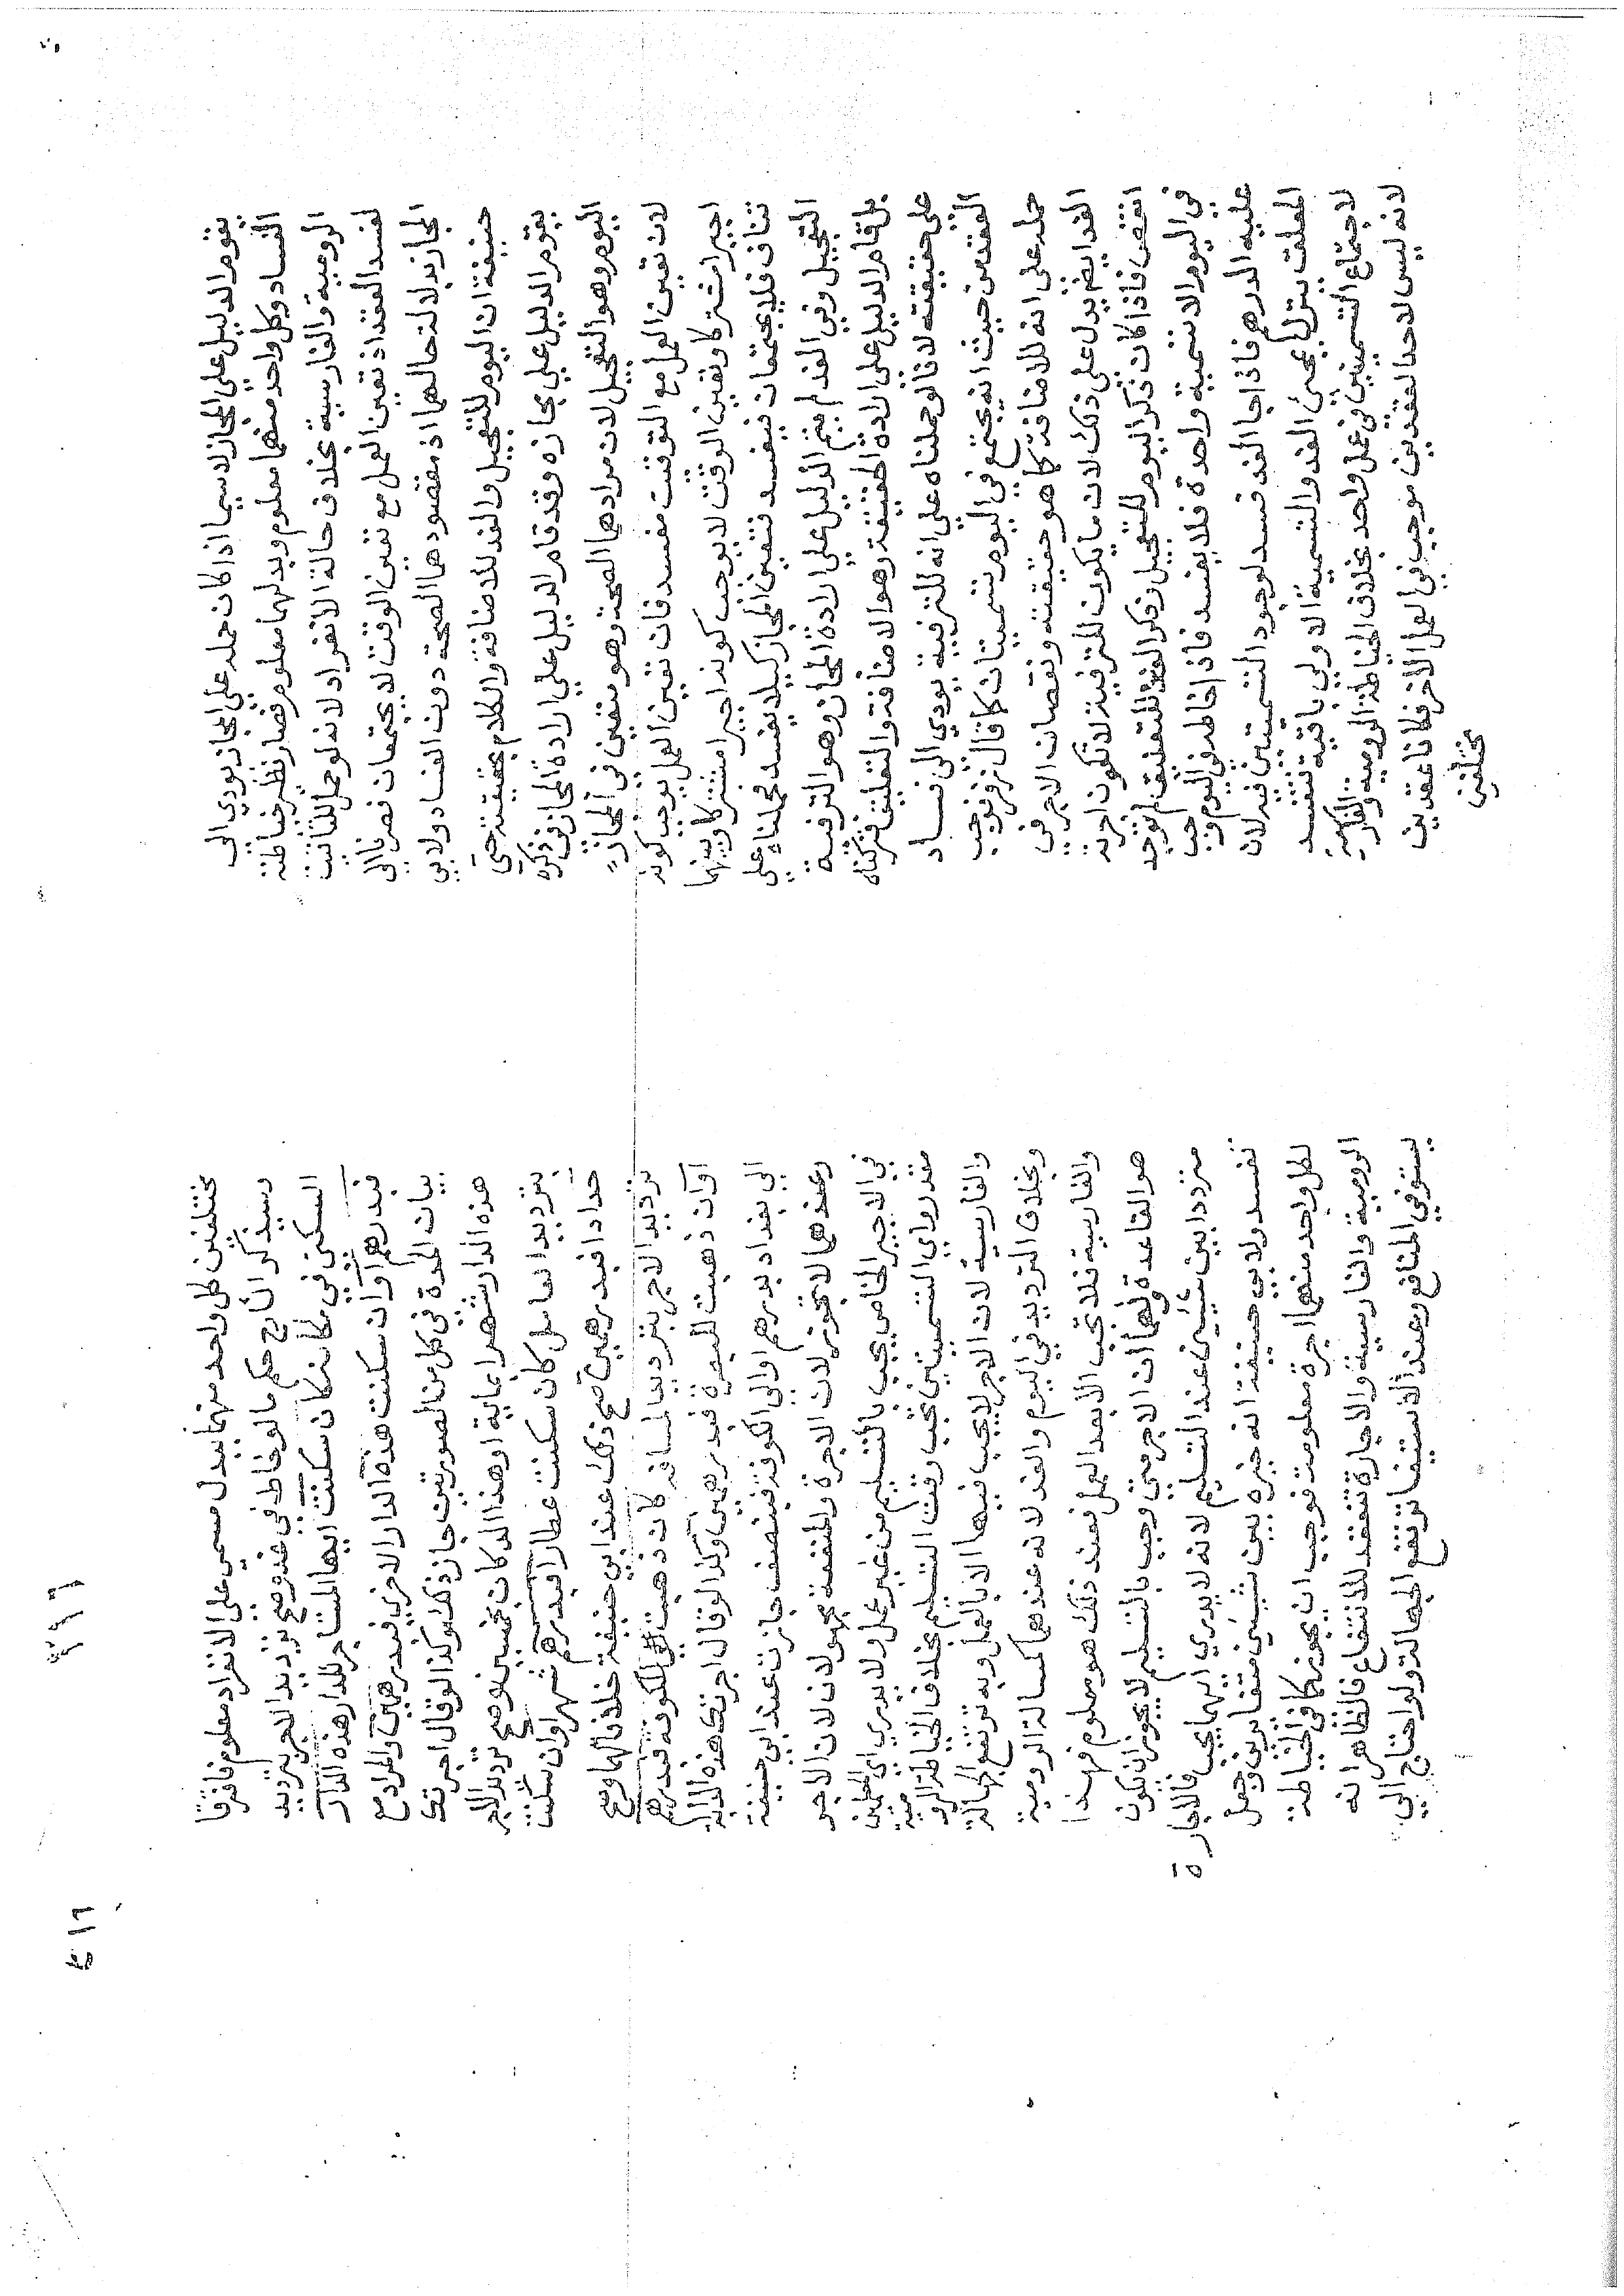 يقوم الدليل علي المجاز لاسيما اذا كان حمله على المجاز يودي الى
الفساد وكل واحد منهما معلوم وبدلهما معلوم فصار نظير خياطة
الرومية والفارسية بخلاف حالة الانفراد لانه لو حمل للتاقيت
لفسد العقد اذ تعيين العمل مع تعيين الوقت لا يجتمعان فصرنا الى
المجاز بدلالة حالهما اذ مقصودهما الصحة دون الفساد ولابي
حنيفة ان اليوم للتعجيل والغد للاضافة والكلام بحقيقته حتى
يقوم الدليل علي مجازه وقد قام الدليل علي ارادة المجاز في ذكره
اليوم وهو التعجيل لان مرادهما الصحة وهو متعين في المجاز
لان تعيين العمل مع التوقيت مفسد فان تعيين العمل يوجب كونه
اجيرا مشتركا وتعيين الوقت لا يوجب كونه اجيرا مشتركا وبينهما
تناف فلا يجتمعان فيفسد فتعين المجاز كيلا يفسد فحملناه على
التعجيل وفي الغد لم يقم الدليل علي ارادة المجاز وهو الترفية
بل قام الدليل على ارادة الحقيقة وهو الاضافة والتعليق فتركناه
على حقيقته لانا لو حملناه علي انه للترفية يودي الى فساد
العقد من حيث انه يجتمع في اليوم تسميتان كما قال زفر فوجب
حمله على انه للاضافة كما هو حقيقته ونقصان الاجر في
الغد ايضا يدل على ذلك لان ما يكون للترفية لا تكون اجرته
انقص فاذا كان ذكر اليوم للتعجيل وذكر الغد للتعليق لم توجد
في اليوم الا تسمية واحدة فلا يفسد فاذا خاطه في اليوم وجب
عليه الدرهم فاذا جا الغد فسد لوجود التسميتين فيه لان
المعلق ينزل بمجئ الغد والتسمية الاولي باقية فتفسد
لاجتماع التسميتين في عمل واحد بخلاف الخياطة الرومية والفارسية
لانه ليس لاحد العقدين موجب في العمل الاخر فكانا عقدين
مختلفين
مختلفين كل واحد منهما ببدل مسمي على الانفراد معلوم فافترقا
وسيذكر الشارح حكم ما لو خاط في غد وصح ترديد الاجر بترديد
السكنى في مكانه كان سكنت ايها المستاجر للدار هذه الدار
فبدرهم او ان سكنت هذه الدار الاخري فبدرهمين والمراد مع
بيان المدة في كل من الصورتين جاز ذلك وكذا لو قال اجرتك
هذه الدار شهرا بماية او هذا الدكان بخمسين وصح ترديد الاجر
بترديد العامل كان سكنت عطارا فبدرهم شهرا وان سكنت
حدادا فبدرهمين صح ذلك عند ابي حنيفة خلافا لهما وصح
ترديد الاجر بترديد المسافة كان ذهبت للكوفه فبدرهم
او ان ذهبت للبصرة فبدرهمين وكذا لو قال اجرتك هذه الدابة
الي بغداد بدرهم او الي الكوفة فبنصف جازت عند ابي حنيفة
وعندهما لا تجوز لان الاجرة والمنفعة مجهولان لان الاجر
في الاجير الخاص يجب بالتسليم من غير عمل ولا يدري اي العملين
مقدر واي التسميتين تجب وقت التسليم بخلاف الخياطة الرومية
والفارسية لان الاجر لا يجب فيها الا بالعمل وبه ترتفع الجهالة
وبخلاف الترديد في اليوم والغد لانه عندهما كمسالة الرومية
والفارسية فلا تجب الا بعد العمل فعند ذلك هو معلوم فهذا
هو القاعدة ولهما ان الاجر متي وجب بالتسليم لا يجوز ان يكون
مترددا بين شيئين عند التسليم لانه لا يدري ايهما يجب فالاجارة
تفسد ولابي حنيفة انه خيره بين شيئين متغايرين وجعل
لكل واحد منهما اجرة معلومة فوجب ان يجوز كما في الخياطة
الرومية والفارسية والاجارة تنعقد للانتفاع فالظاهر انه
يستوفي المنافع وعند الاستيفا ترتفع الجهالة ولو احتاج الي